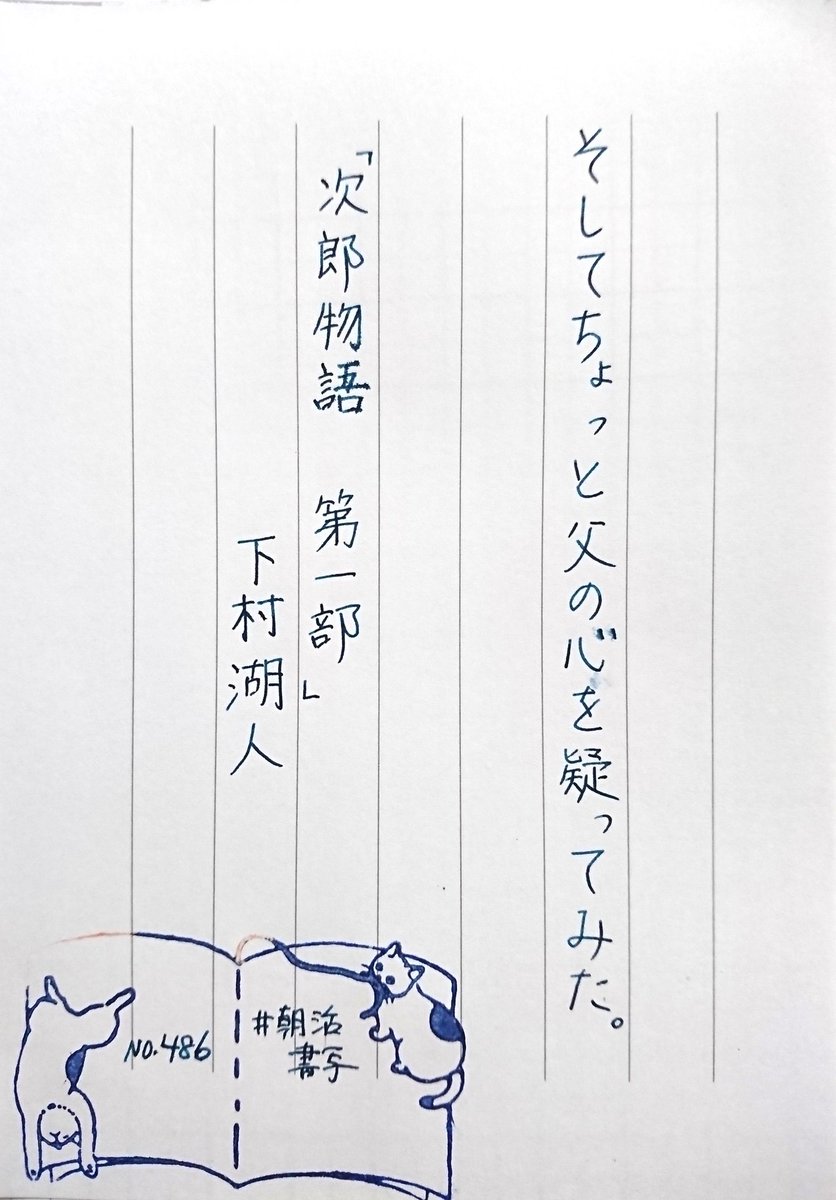 そしてちょっと父の心を疑ってみた。
「次郎物語　第一部」
下村湖人
#朝活
書写
NO.486